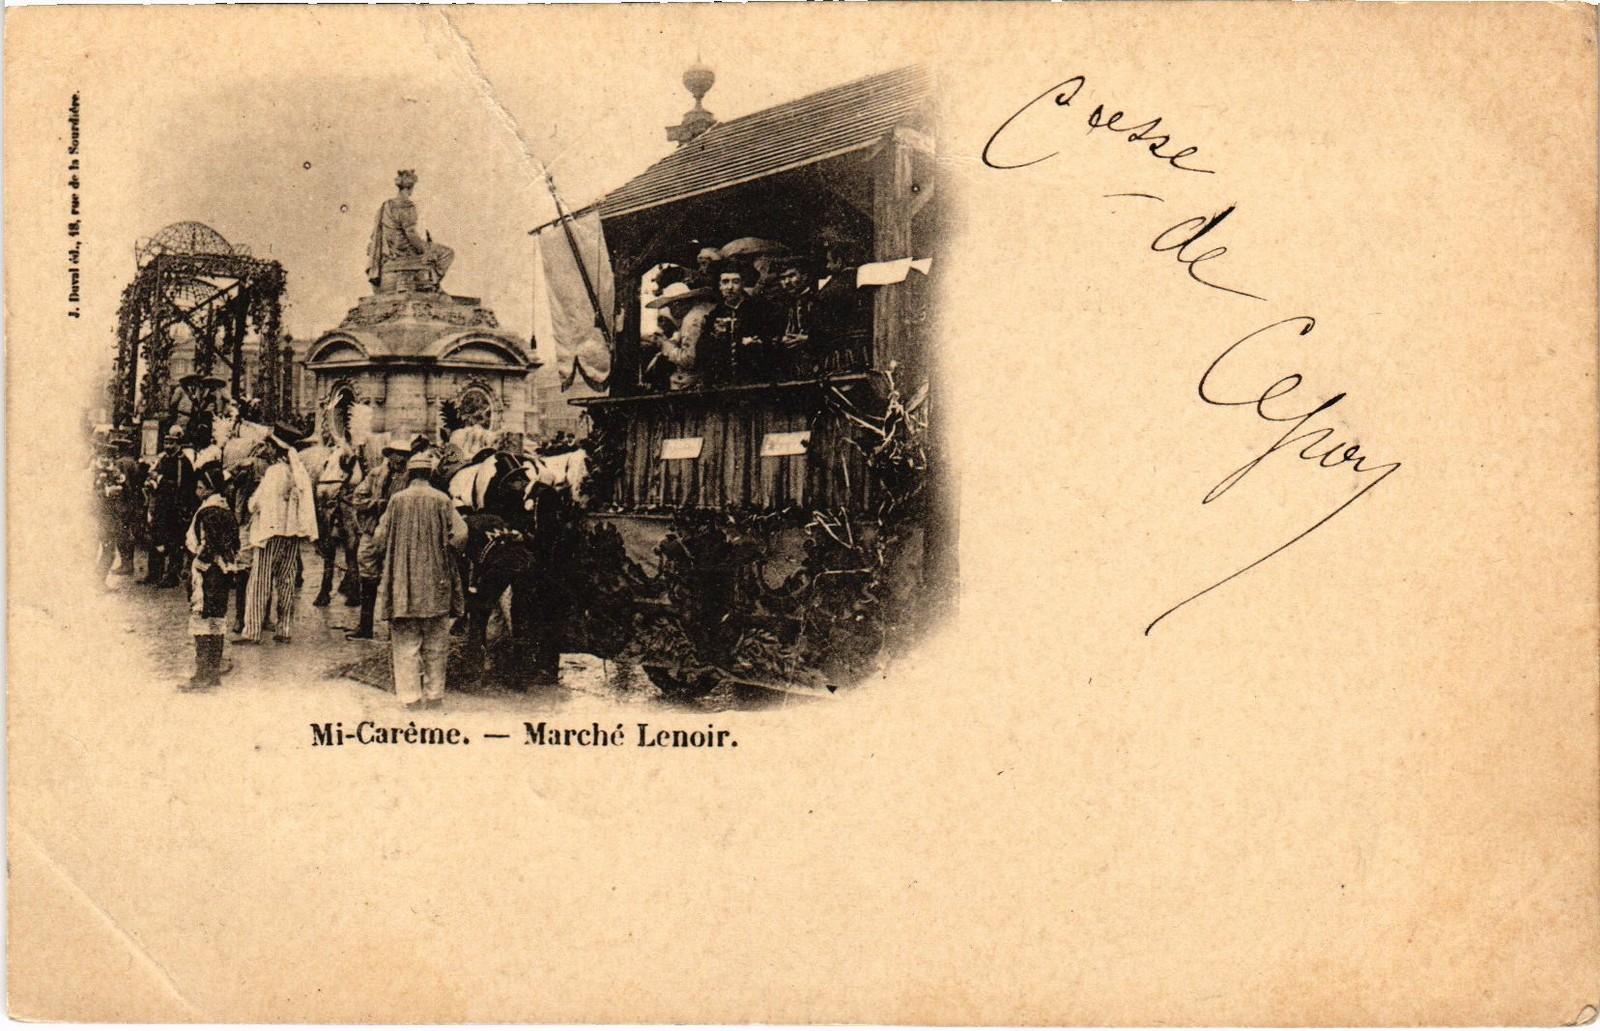 J. Duval éd., 18, rue de la Sourdière.
Csse
de
Mi-Carême. — Marché Lenoir.